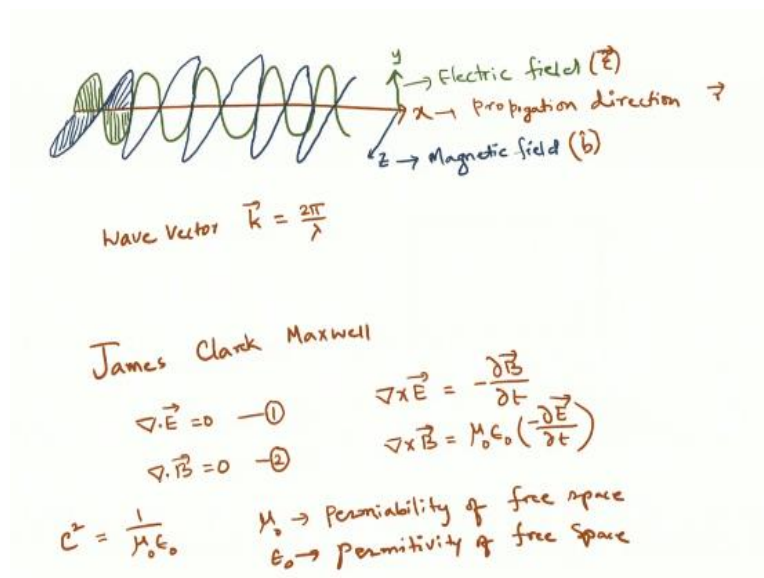 y
→ Electric field (E⃗)
x → Propogation direction →
z → Magnetic field (b̂)
Wave Vector k⃗ = 2π/λ
James Clark Maxwell
∇·E⃗ = 0 —① ∇×E⃗ = -∂B⃗/∂t
∇·B⃗ = 0 —② ∇×B⃗ = μ₀ε₀(-∂E⃗/∂t)
c² = 1/μ₀ε₀ μ₀ → Permiability of free space
ε₀ → permitivity of free space